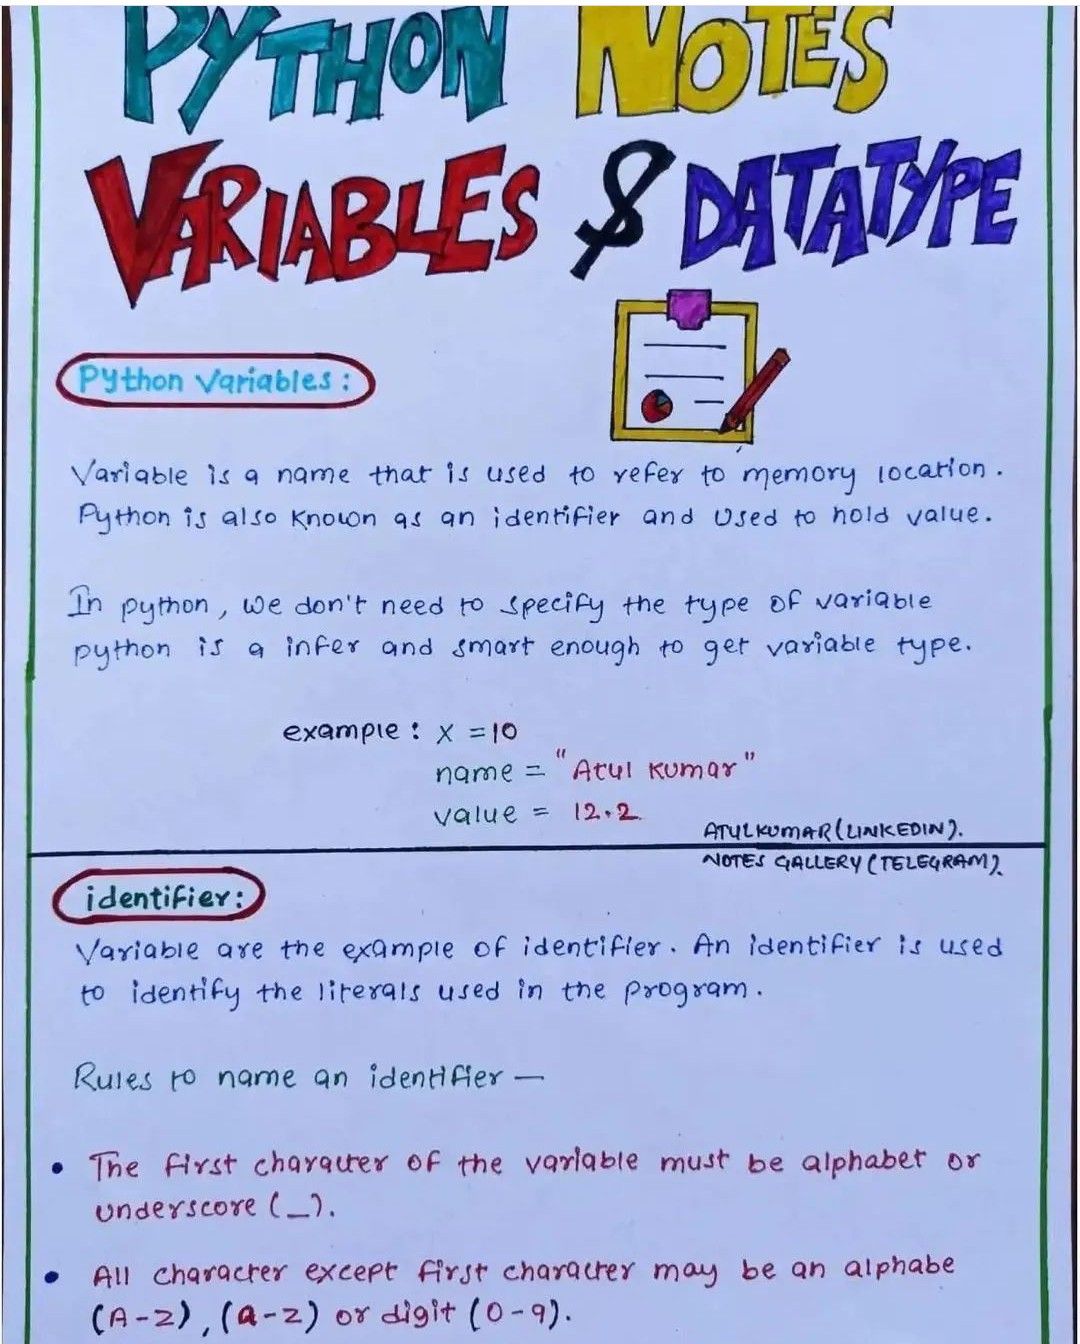 PYTHON NOTES
VARIABLES & DATATYPE
Python Variables:
Variable is a name that is used to refer to memory location.
Python is also known as an identifier and used to hold value.
In python, we don't need to specify the type of variable
python is a infer and smart enough to get variable type.
example: x = 10
name = "Atul Kumar"
value = 12.2
ATULKUMAR(LINKEDIN).
NOTES GALLERY (TELEGRAM).
identifier:
Variable are the example of identifier. An identifier is used
to identify the literals used in the program.
Rules to name an identifier —
• The first character of the variable must be alphabet or
underscore (_).
• All character except first character may be an alphabe
(A-Z), (a-z) or digit (0-9).